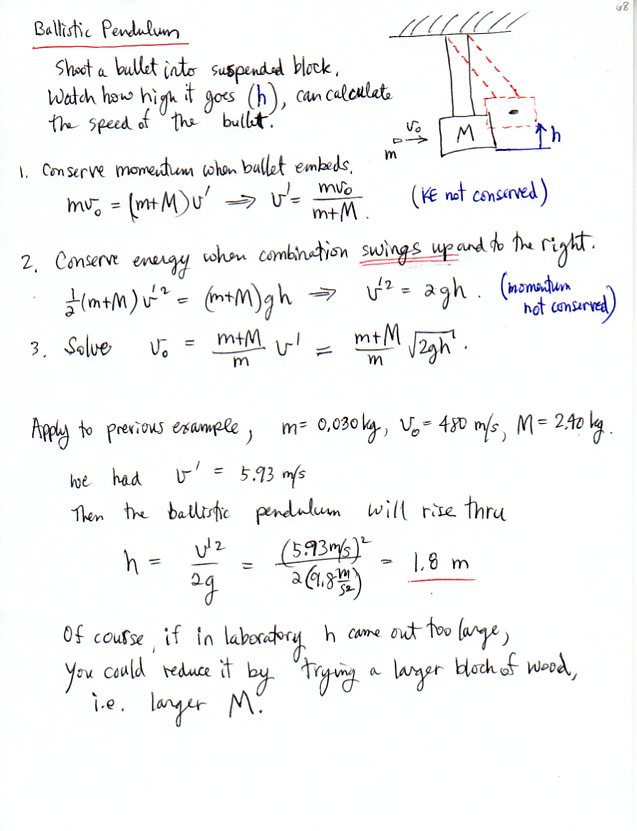 68
Ballistic Pendulum
Shoot a bullet into suspended block.
Watch how high it goes (h), can calculate
the speed of the bullet.
m
v₀
M
h
1. Conserve momentum when bullet embeds.
mv₀ = (m+M)v' ⇒ v' = mv₀/(m+M). (KE not conserved)
2. Conserve energy when combination swings up and to the right.
½(m+M)v'² = (m+M)gh ⇒ v'² = 2gh. (momentum
not conserved)
3. Solve v₀ = (m+M)/m v' = (m+M)/m √(2gh).
Apply to previous example, m = 0.030 kg, v₀ = 480 m/s, M = 2.40 kg.
we had v' = 5.93 m/s
Then the ballistic pendulum will rise thru
h = v'²/2g = (5.93 m/s)²/2(9.8 m/s²) = 1.8 m
Of course, if in laboratory h came out too large,
you could reduce it by trying a larger block of wood,
i.e. larger M.